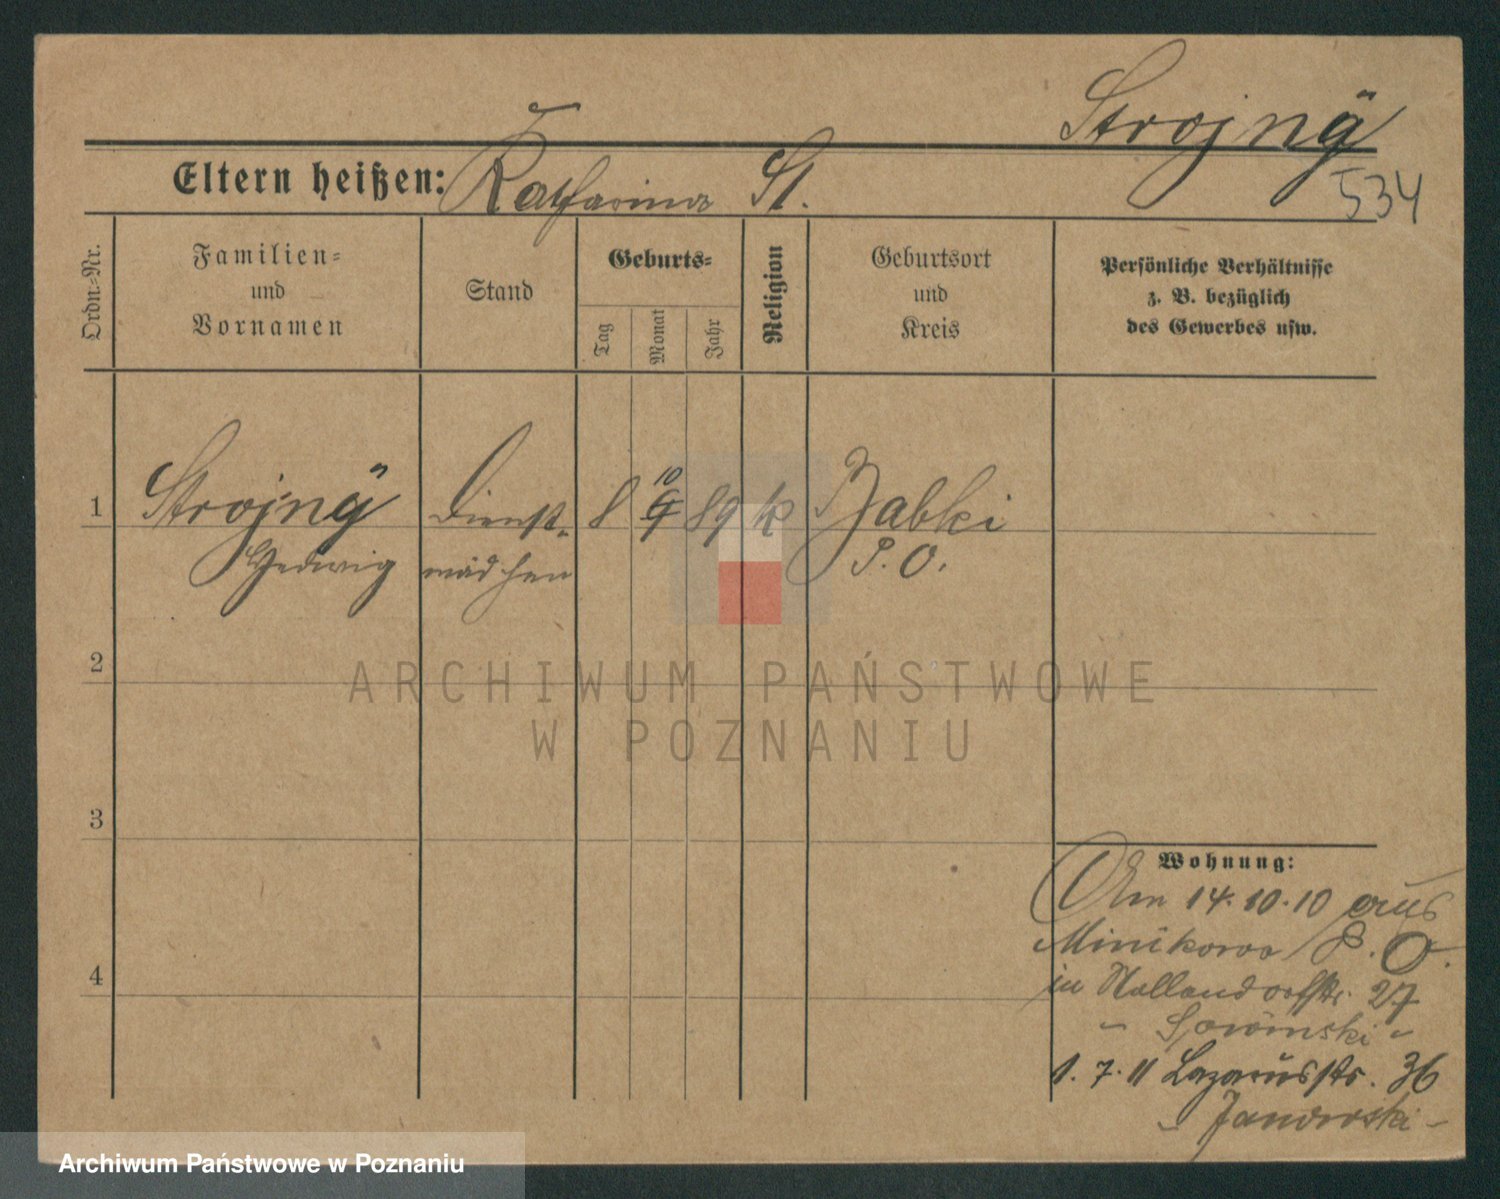 Strojnÿ
534
Eltern heißen: Katharina St.
Ordn.-Nr.
Familien-
und
Vornamen
Stand
Geburts-
Tag
Monat
Jahr
Religion
Geburtsort
und
Kreis
Persönliche Verhältnisse
z. B. bezüglich
des Gewerbes usw.
1 Strojnÿ Dienst- 8 10 9 89 k Babki
Hedwig mädchen P. O.
2
3
4
Wohnung:
Am 14.10.10 aus
Minikowo P. O.
in Wallandorffstr. 27
1.7.11 Lazarusstr. 36
- Jandowski -
ARCHIWUM PAŃSTWOWE
W POZNANIU
Archiwum Państwowe w Poznaniu